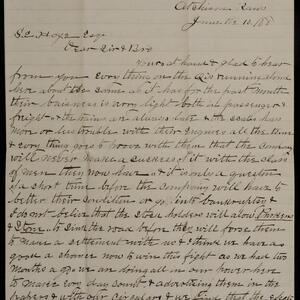 Atchison Kans
June the 10 /88
S.E. Hoge Esq
Dear Sir & Bro
Yours at hand & glad to hear
from you Every thing on the Q is running along
here about the same as it has for the past month
their business is very light both at passenger &
freight & the trains are always late & the scabs has
more or less trouble with their Engines all the time
& every thing goes to prove with them that the Comp
will never make a success of it with the class
of men they now have & it is only a question
of a short time before the company will have to
better their condition or go into bankruptcy &
I do not believe that the stockholders will allow Perkins
& Stone to sink the road before they will force them
to make a settlement with us & I think we have as
good a chance now to win this fight as we had two
months ago we are doing all in our power here
to make every day count & advertising them in the
papers & with our circulars & we find that the